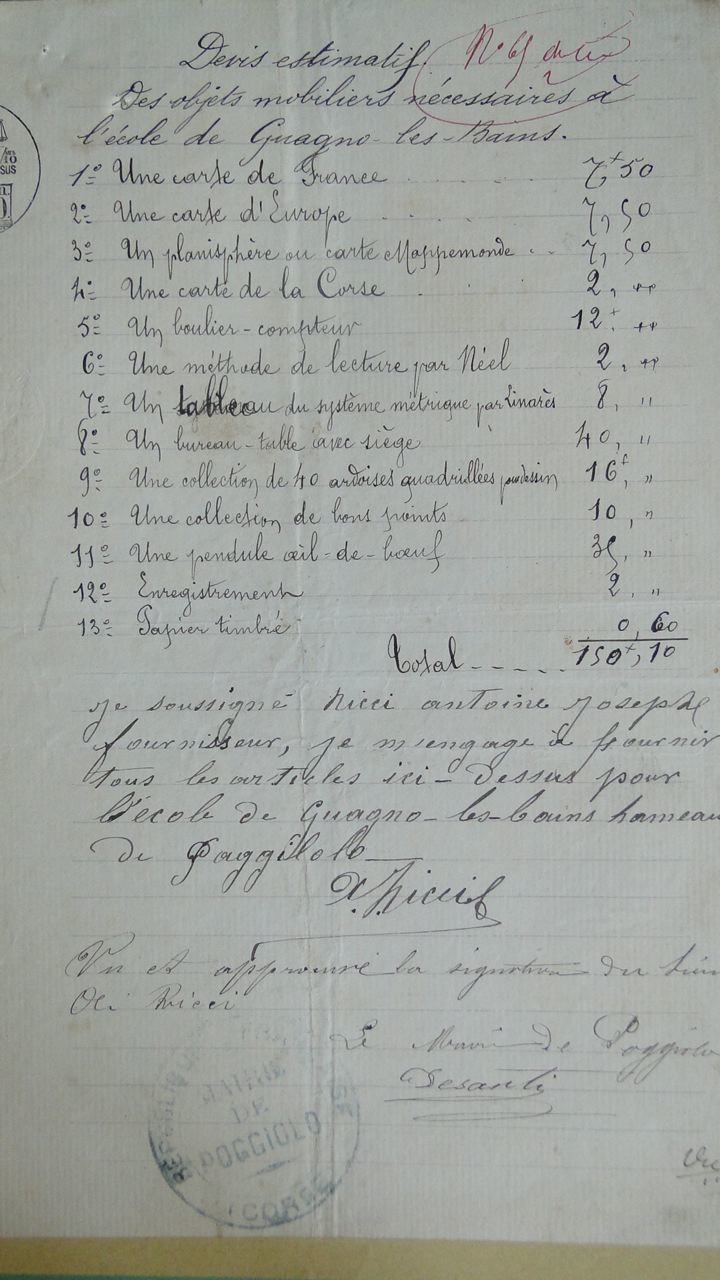 Devis estimatif
N° 65 du
Des objets mobiliers nécessaires à
l'école de Guagno-les-Bains.
1° Une carte de France 7f,50
2° Une carte d'Europe 7,50
3° Un planisphère ou carte Mappemonde 7,50
4° Une carte de la Corse 2, "
5° Un boulier-compteur 12f, "
6° Une méthode de lecture par Néel 2, "
7° Un tableau du système métrique par Linarès 8, "
8° Un bureau-table avec siège 40, "
9° Une collection de 40 ardoises quadrillées pour dessin 16f, "
10° Une collection de bons points 10, "
11° Une pendule œil-de-bœuf 35, "
12° Enregistrement 2, "
13° Papier timbré 0,60
Total 150f,10
je soussigné Ricci antoine Joseph
fournisseur, je m'engage à fournir
tous les articles ici-dessus pour
l'école de Guagno-les-bains hameau
de Poggiolo
A. J. Ricci
Vu et approuvé la signature du
Ricci
Le Maire de Poggiolo
Desanti
MAIRIE
DE
POGGIOLO
(CORSE)